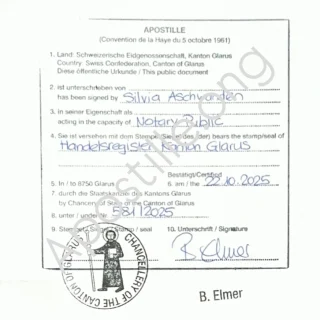 APOSTILLE
(Convention de la Haye du 5 octobre 1961)
1. Land: Schweizerische Eidgenossenschaft, Kanton Glarus
Country: Swiss Confederation, Canton of Glarus
Diese öffentliche Urkunde / This public document
2. ist unterschrieben von
has been signed by Silvia Aschwanden
3. in seiner Eigenschaft als
acting in the capacity of Notary Public
4. Sie ist versehen mit dem Stempel/Siegel des (der) bears the stamp/seal of
Handelsregister Kanton Glarus
Bestätigt/Certified
5. In / to 8750 Glarus 6. am / the 22.10.2025
7. durch die Staatskanzlei des Kantons Glarus
by Chancery of State of the Canton of Glarus
8. unter / under Nr. 581/2025
9. Stempel/Siegel / Stamp / seal 10. Unterschrift / Signature
B. Elmer
CHANCELLERY OF THE CANTON OF GLARUS
B. Elmer
Apostille.org